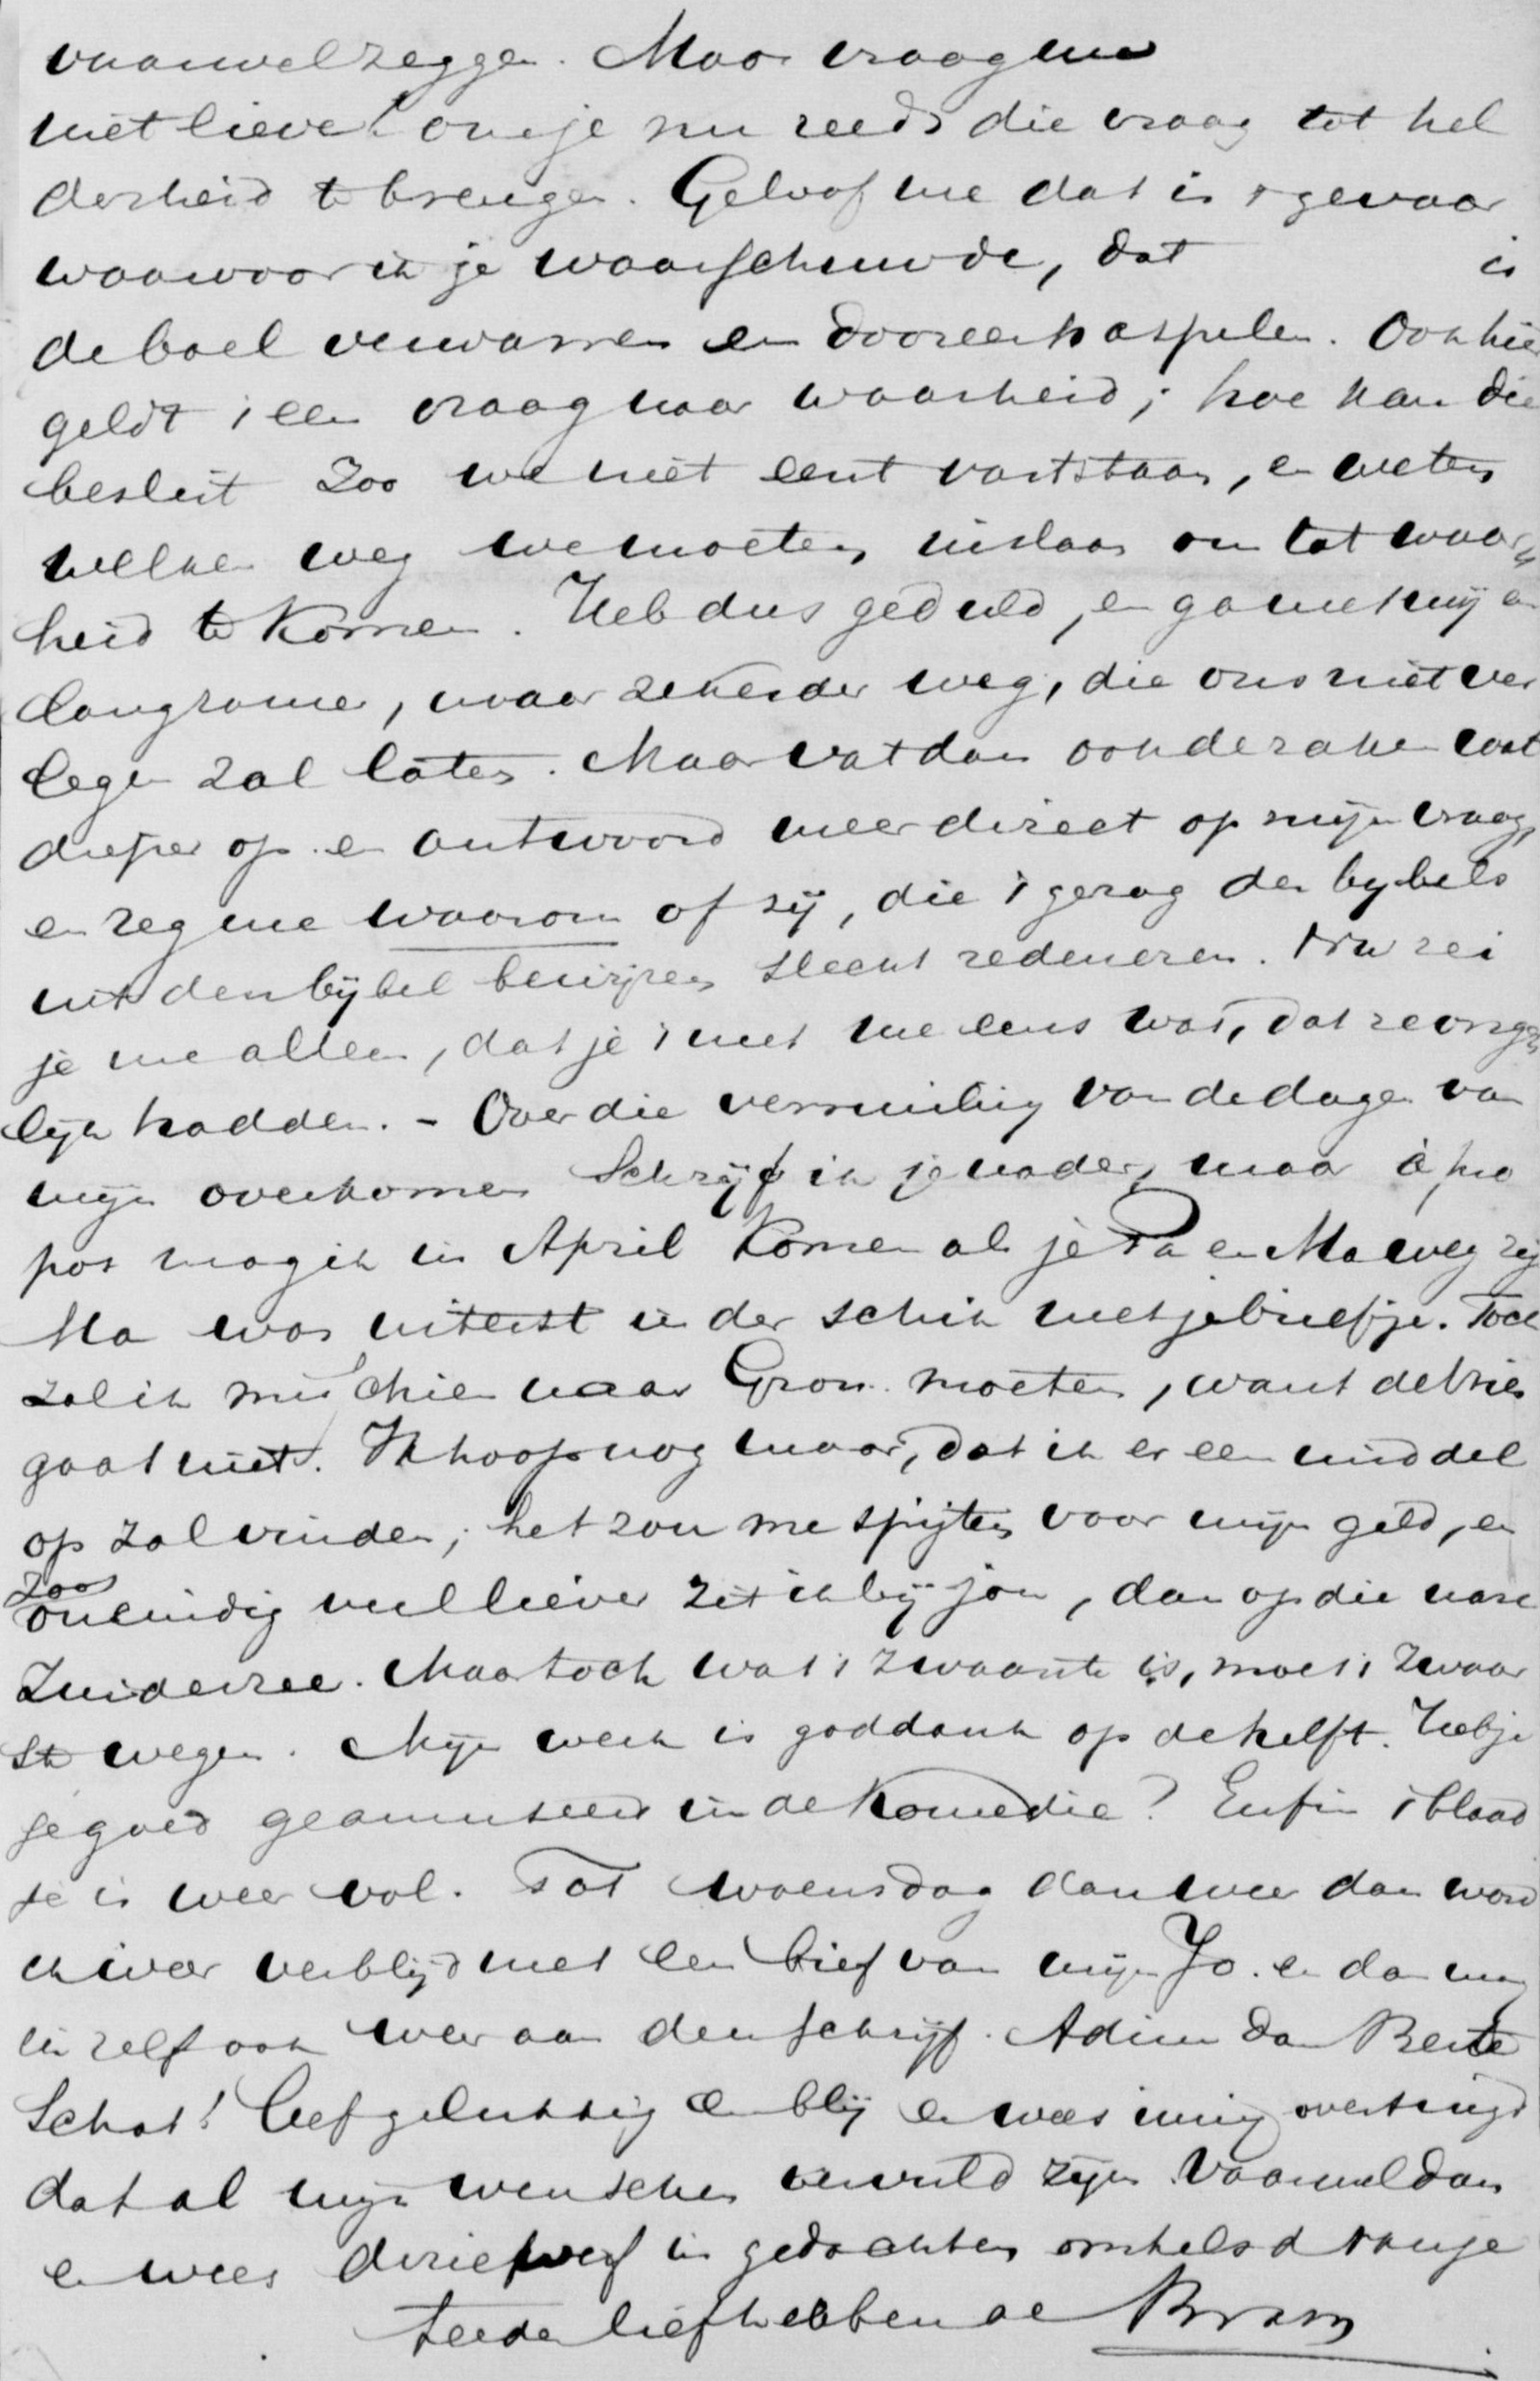 vaarwel zeggen. Maar vraag me
niet lieve! om je nu reeds die vraag tot hel
derheid te brengen. Geloof me dat is 't gevaar
waarvoor ik je waarschuwde, dat is
de boel verwarren en dooreenhaspelen. Ook hier
geldt 't een vraag naar waarheid; hoe kan die
beslist zoo we niet eerst vaststaan, en weten
welken weg we moeten inslaan om tot waar
heid te komen. Heb dus geduld, en ga met mij en
langzame, maar zekerder weg, die ons niet ver
legen zal laten. Maar vat dan ook de zaken wat
dieper op en antwoord meer direct op mijn vraag,
en zeg me waarom of zij, die 't gezag des bybels
uit den bijbel bewijzen slecht redeneren. Nu zei
je me alleen, dat je 't met me eens was, dat ze onge
lijk hadden. - Over die verruiling van de dagen van
mijn overkomen schrijf ik je nader, maar à pro
pos mag ik in April komen als je Pa en Ma weg zij
Ma was uiterst in der schik met je briefje. Toch
zal ik misschien naar Gron. moeten, want de Vries
gaat niet. Ik hoop nog maar, dat ik er een middel
op zal vinden; het zou me spijten voor mijn geld, en
zoo oneindig veel liever zit ik bij jou, dan op die nare
Zuiderzee. Maar toch wat 't zwaarste is, moet 't zwaar
st wegen. Mijn werk is goddank op de helft. Heb je
je goed geamuseerd in de Komedie? Enfin 't blaad
je is weer vol. Tot woensdag dan weer dan word
ik weer verblijd met een brief van mijn Jo. en dan mag
ik zelf ook weer aan den schrijf. Adieu dan Beste
Schat! leef gelukkig en blij en wees innig overtuigd
dat al mijn wenschen vervuld zijn. Vaarwel dan
en wees driewerf in gedachten omhelsd van je
teeder liefhebbende Bram